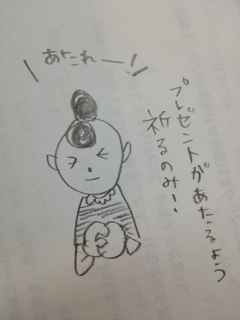 あたれー!
プレゼントがあたるよう
祈るのみー!